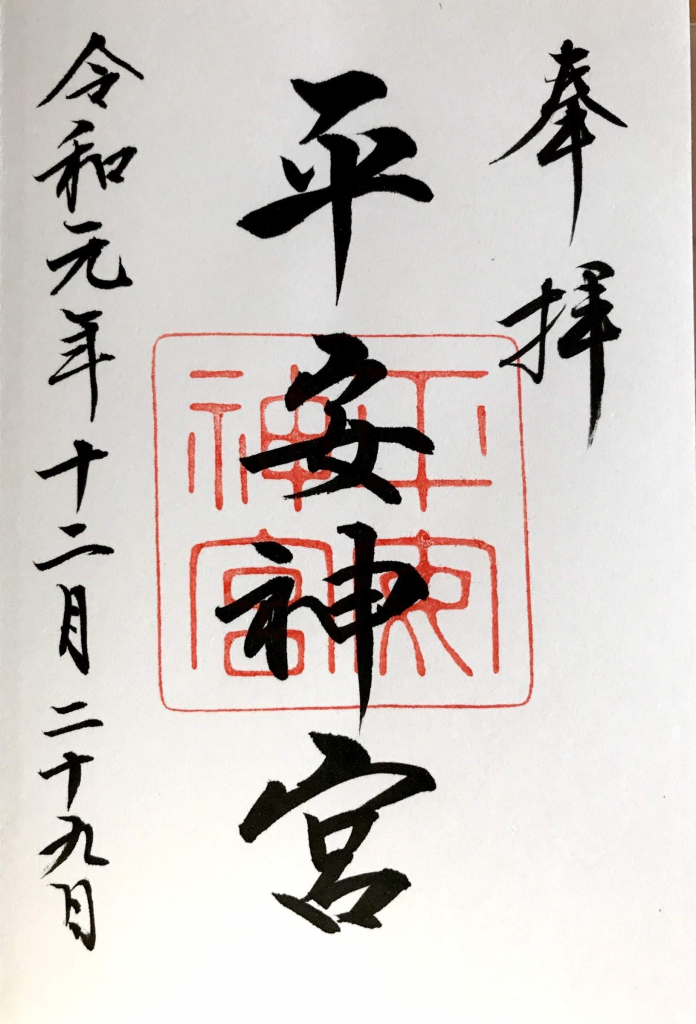 奉拝
平安神宮
平安神宮
令和元年十二月二十九日